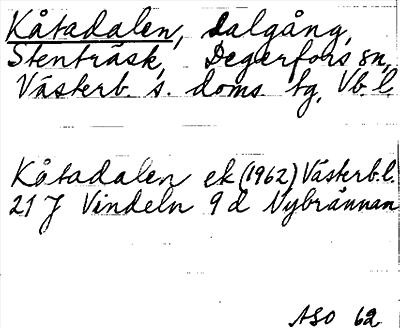 Kåtadalen, dalgång,
Stenträsk, Degerfors sn,
Västerb. s. doms. tg, Vb. l.
Kåtadalen ek (1962) Västerb.l.
21 J Vindeln 9 d Nybrännan
ASO 62